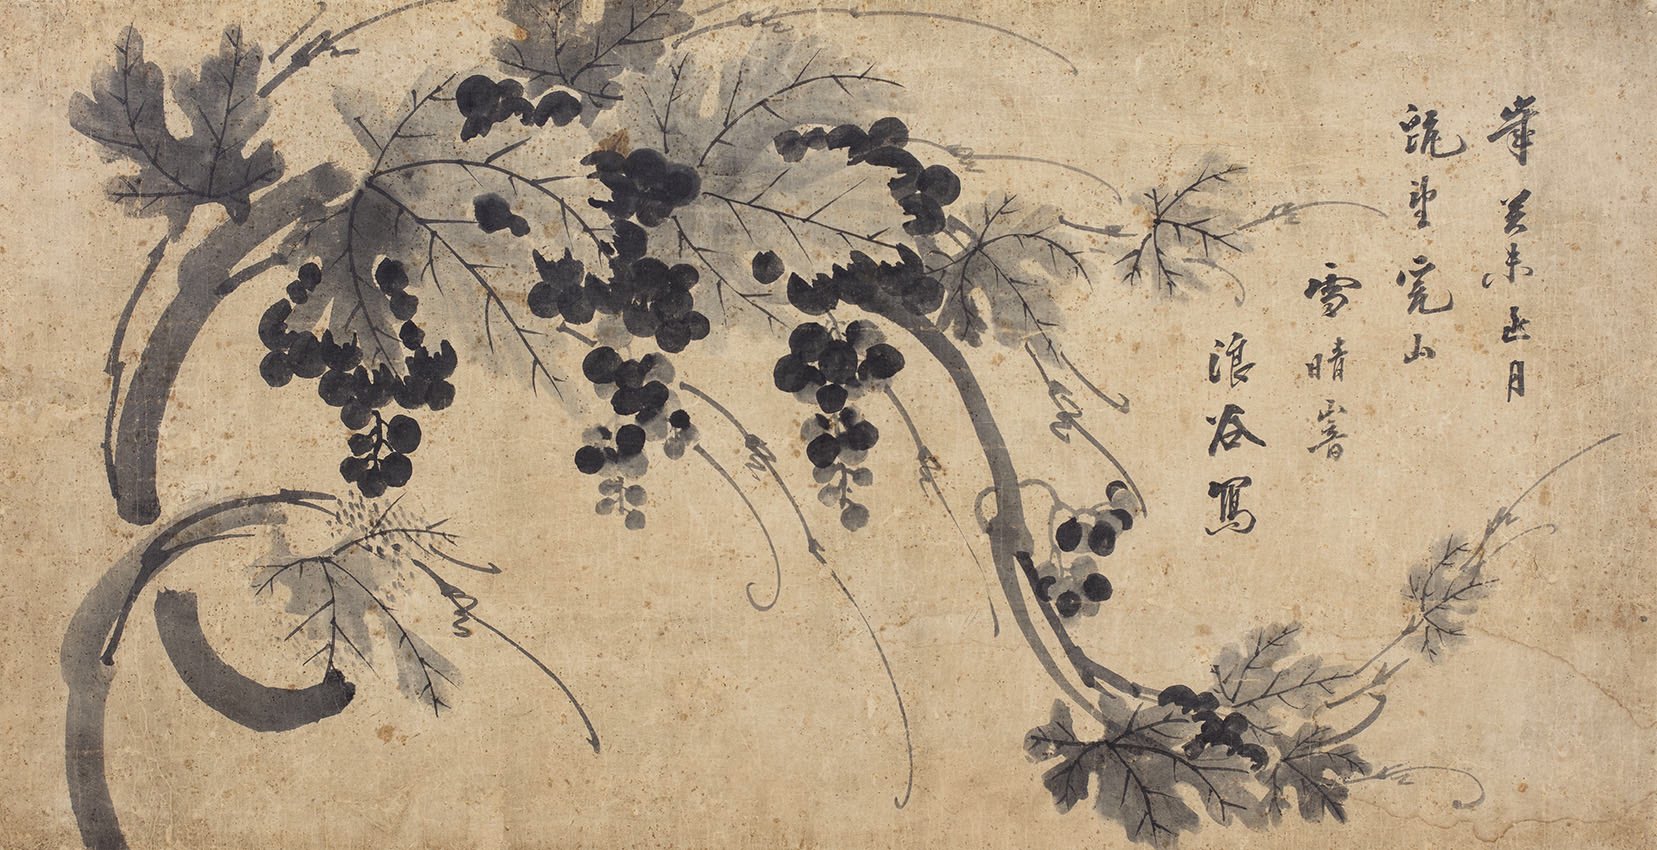 歲癸未正月
望山
雪晴
浪谷寫